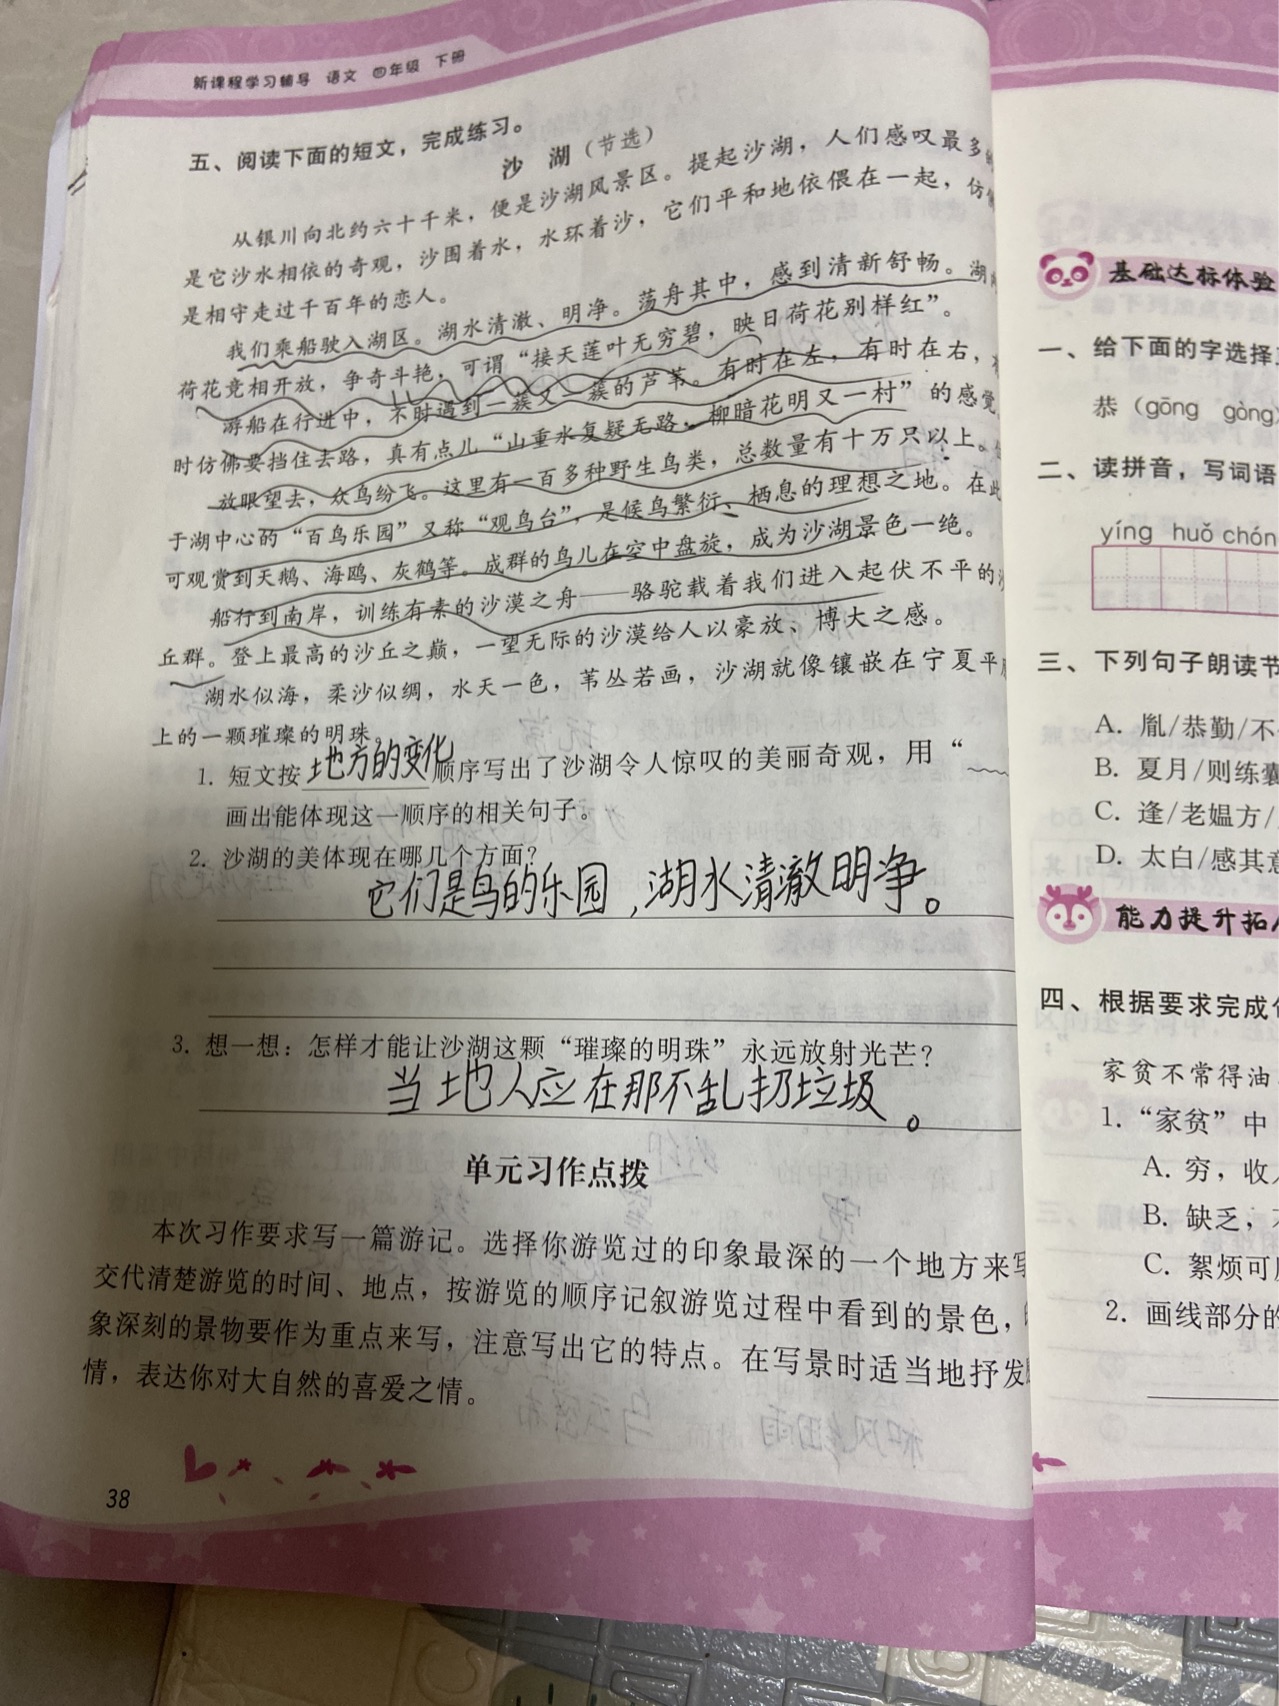 新课程学习辅导 语文 四年级 下册
五、阅读下面的短文，完成练习。
沙 湖（节选）
从银川向北约六十千米，便是沙湖风景区。提起沙湖，人们感叹最多
是它沙水相依的奇观，沙围着水，水环着沙，它们平和地依偎在一起，仿
是相守走过千百年的恋人。
我们乘船驶入湖区。湖水清澈、明净。荡舟其中，感到清新舒畅。湖
荷花竞相开放，争奇斗艳，可谓“接天莲叶无穷碧，映日荷花别样红”。
游船在行进中，不时遇到一簇又一簇的芦苇。有时在左，有时在右，
时仿佛要挡住去路，真有点儿“山重水复疑无路，柳暗花明又一村”的感觉
放眼望去，众鸟纷飞。这里有一百多种野生鸟类，总数量有十万只以上。
于湖中心的“百鸟乐园”又称“观鸟台”，是候鸟繁衍、栖息的理想之地。在此
可观赏到天鹅、海鸥、灰鹤等。成群的鸟儿在空中盘旋，成为沙湖景色一绝。
船行到南岸，训练有素的沙漠之舟——骆驼载着我们进入起伏不平的
丘群。登上最高的沙丘之巅，一望无际的沙漠给人以豪放、博大之感。
湖水似海，柔沙似绸，水天一色，苇丛若画，沙湖就像镶嵌在宁夏平
上的一颗璀璨的明珠。
1. 短文按地方的变化顺序写出了沙湖令人惊叹的美丽奇观，用“
画出能体现这一顺序的相关句子。
2. 沙湖的美体现在哪几个方面？
它们是鸟的乐园，湖水清澈明争。
3. 想一想：怎样才能让沙湖这颗“璀璨的明珠”永远放射光芒？
当地人应在那不乱扔垃圾。
单元习作点拨
本次习作要求写一篇游记。选择你游览过的印象最深的一个地方来写
交代清楚游览的时间、地点，按游览的顺序记叙游览过程中看到的景色，
象深刻的景物要作为重点来写，注意写出它的特点。在写景时适当地抒发
情，表达你对大自然的喜爱之情。
38
基础达标体验
一、给下面的字选择
恭（gōng gòng）
二、读拼音，写词语
yíng huǒ chón
三、下列句子朗读节
A. 胤/恭勤/不
B. 夏月/则练囊
C. 逢/老媪方/
D. 太白/感其意
能力提升拓
四、根据要求完成
家贫不常得油
1. “家贫”中
A. 穷，收
B. 缺乏，
C. 絮烦可
2. 画线部分的